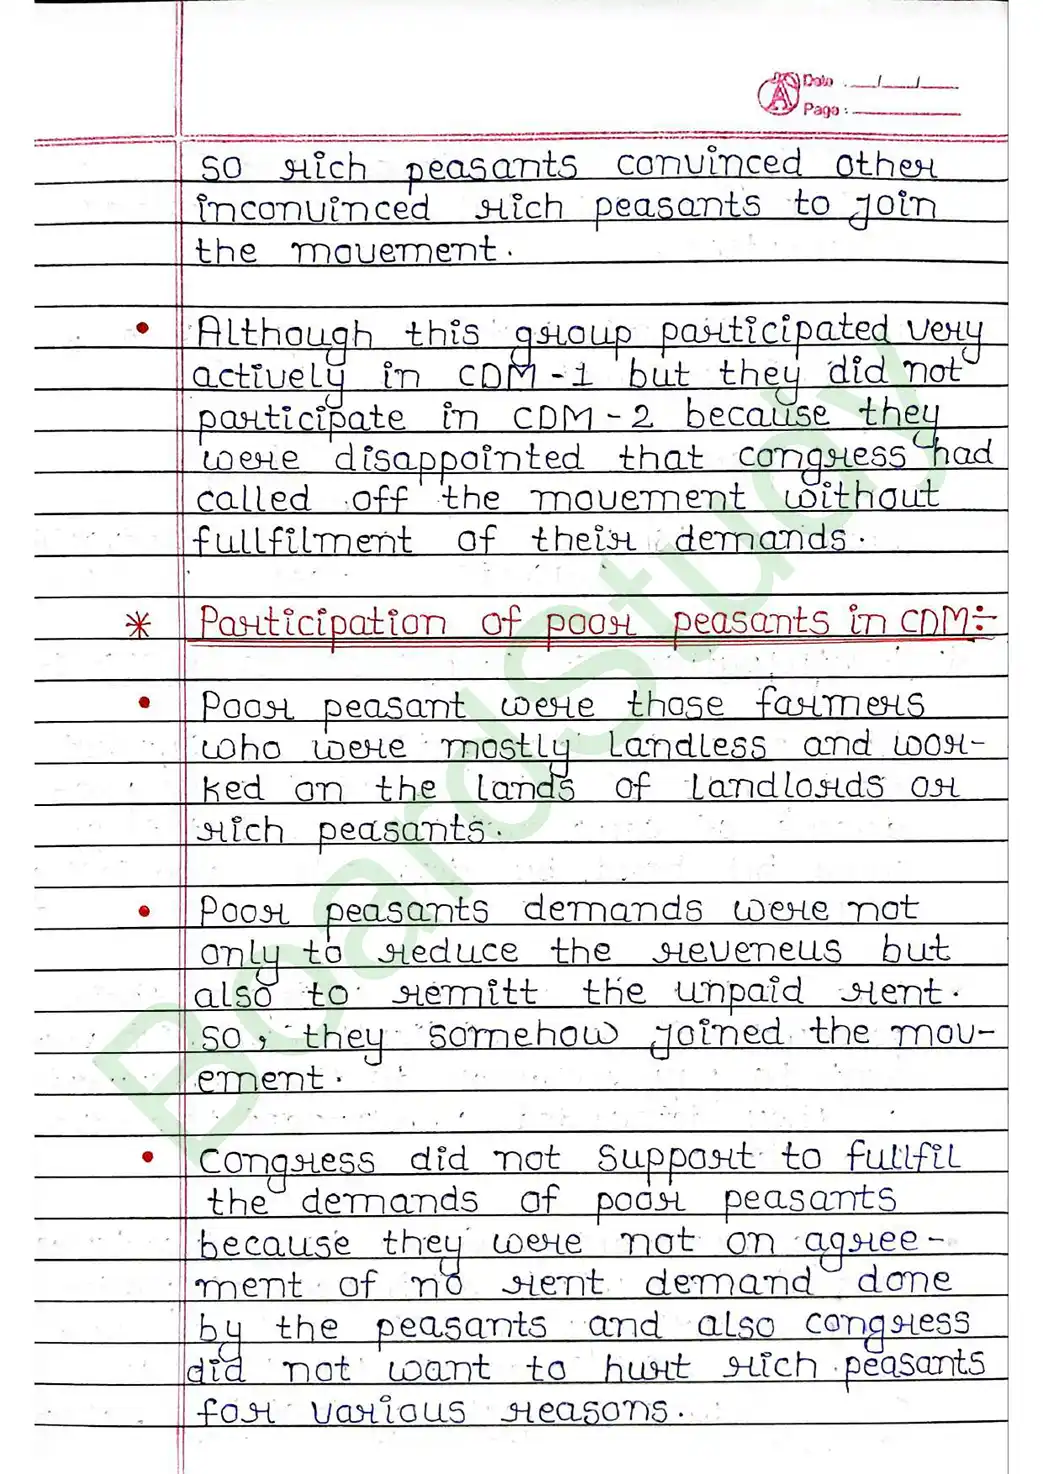 Date : __/__/__
Page : ______
so rich peasants convinced other
inconvinced rich peasants to join
the movement.
• Although this group participated very
actively in CDM-1 but they did not
participate in CDM-2 because they
were disappointed that congress had
called off the movement without
fullfilment of their demands.
* Participation of poor peasants in CDM÷
• Poor peasant were those farmers
who were mostly landless and wor-
ked on the lands of landlords or
rich peasants.
• Poor peasants demands were not
only to reduce the reveneus but
also to remitt the unpaid rent.
so, they somehow joined the mov-
ement.
• Congress did not support to fullfil
the demands of poor peasants
because they were not on agree-
ment of no rent demand done
by the peasants and also congress
did not want to hurt rich peasants
for various reasons.
BoardStudy